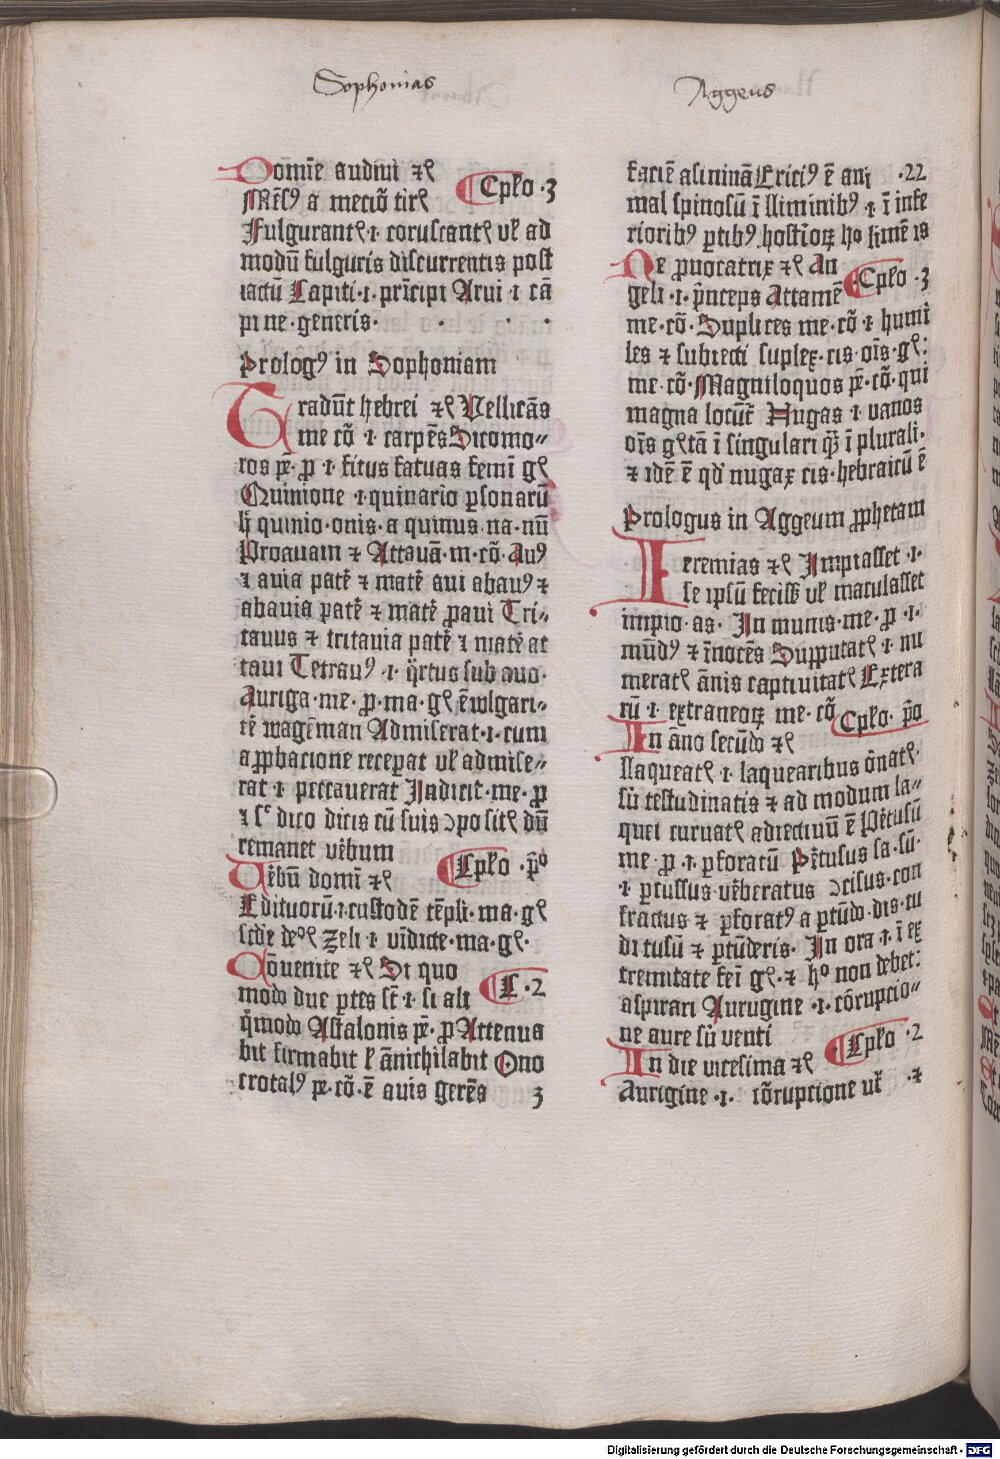 Sophonias
Aggeus
Domīe audiui ⁊ꝛ
Mēsꝰ a meciō tirꝭ Cplo ·3
Fulgurantꝭ ·i· coruscantꝭ vl ad
modū fulguris discurrentis post
iactū Capiti ·i· prīcipi Arui ·i· cā
pi ne · generis · · · ·
Prologꝰ in Sophoniam
Tradūt hebrei ⁊ꝛ Vellicās
me cō ·i· carpēs Sicomo〃
ros pe· p ·i· ficus fatuas femī gꝭ
Quinione ·i· quinario psonarū
h quinio · onis · a quinus · na · nū
Proauam ⁊ Attauā · m · cō · Auꝰ
⁊ auia patē ⁊ matē aui abauꝰ ⁊
abauia patē ⁊ matē paui Tri〃
tauus ⁊ tritauia patē ⁊ matē at
taui Tetrauꝰ ·i· q̄rtus sub auo ·
Auriga · me · p · ma · gꝭ ē wlgari〃
tē wagēman Admiserat ·i· cum
a ꝓbacione receperat vl admise〃
rat ·i· peccauerat Indicit · me · p
⁊ sꝭ dico dicis cū suis ↄpositꝭ dū
remanet vēbum
Vēbū domī ⁊ꝛ Cplo · pͦ
Edituorū ·i· custodē tēpli · ma · gꝭ
Zeli ·i· vīdicte · ma · gꝭ·
Cōuenite ⁊ꝛ Si quo
modo due ptes st̄ ·i· si ali C ·2
q̄modo Astalonis pe· p Attenua
bit firmabit l ānichilabit Ono
crotalꝰ pe· cō · ē auis gerēs 3
faciē asininā Ericiꝰ ē ani ·22
mal spinosū ī sliminibꝰ ·i· ī infe
rioribꝰ ptibꝰ hostioꝝ hͦ limē is
Ne puocatrix ⁊ꝛ An
geli ·i· pn̄ceps Attamē Cplo ·3
me · cō · Suplices me · cō ·i· humi
les ⁊ subiecti suplex · cis · oīs · gꝭ:
me · cō · Magniloquos pe· cō · qui
magna locūt̄ Nugas ·i· vanos
oīs gꝭ tā ī singulari q̄ ī plurali ·
⁊ idē ē qd nugax cis · hebraicū ē
Prologus in Aggeum ꝓphetam
Ieremias ⁊ꝛ Impiasset ·i·
se ipsū fecisse vl maculasset
impio · as · In munis · me · p ·i·
mūdꝰ ⁊ īnocēs Supputatꝭ ·i· nu
meratꝭ ānis captiuitatꝭ Extera
rū ·i· extraneoꝝ me · cō Cplo · pͦ
In āno secūdo ⁊ꝛ
llaqueatꝭ ·i· laquearibus ōnatꝭ ·
sū testudinatis ⁊ ad modum la〃
quei curuatꝭ adiectiuū ē Petusū
me · p ·i· pforatū Petusus sa · sū ·
·i· ptussus vēberatus ↄcisus · con
fractus ⁊ pforatꝰ a ptūdo · dis · tu
di tusū ⁊ ptūderis · In ora ·i· ī ex
tremitate feī gꝭ · ⁊ hͦ non debet:
aspirari Aurugine ·i· cōrupcio〃
ne aure sū venti
In die vicesima ⁊ꝛ Cplo ·2
Aurigine ·i· cōruptione vl ·⁊
Digitalisierung gefördert durch die Deutsche Forschungsgemeinschaft - DFG